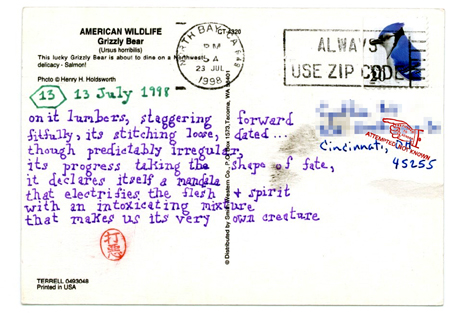 AMERICAN WILDLIFE
Grizzly Bear
(Ursus horribilis)
This lucky Grizzly Bear is about to dine on a Northwest
delicacy - Salmon!
Photo © Henry H. Holdsworth
13 13 July 1998
on it lumbers, staggering forward
fitfully, its stitching loose, dated...
though predictably irregular,
its progress taking the shape of fate,
it declares itself a mandala
that electrifies the flesh & spirit
with an intoxicating mixture
that makes us its very own creature
TERRELL 0493048
Printed in USA
© Distributed by Smith-Western Co., P.O. Tacoma, WA
NORTH BAY
PM
23 JUL
1998
ALWAYS
USE ZIP CODE
ATTEMPTED NOT KNOWN
Cincinnati, OH
45255